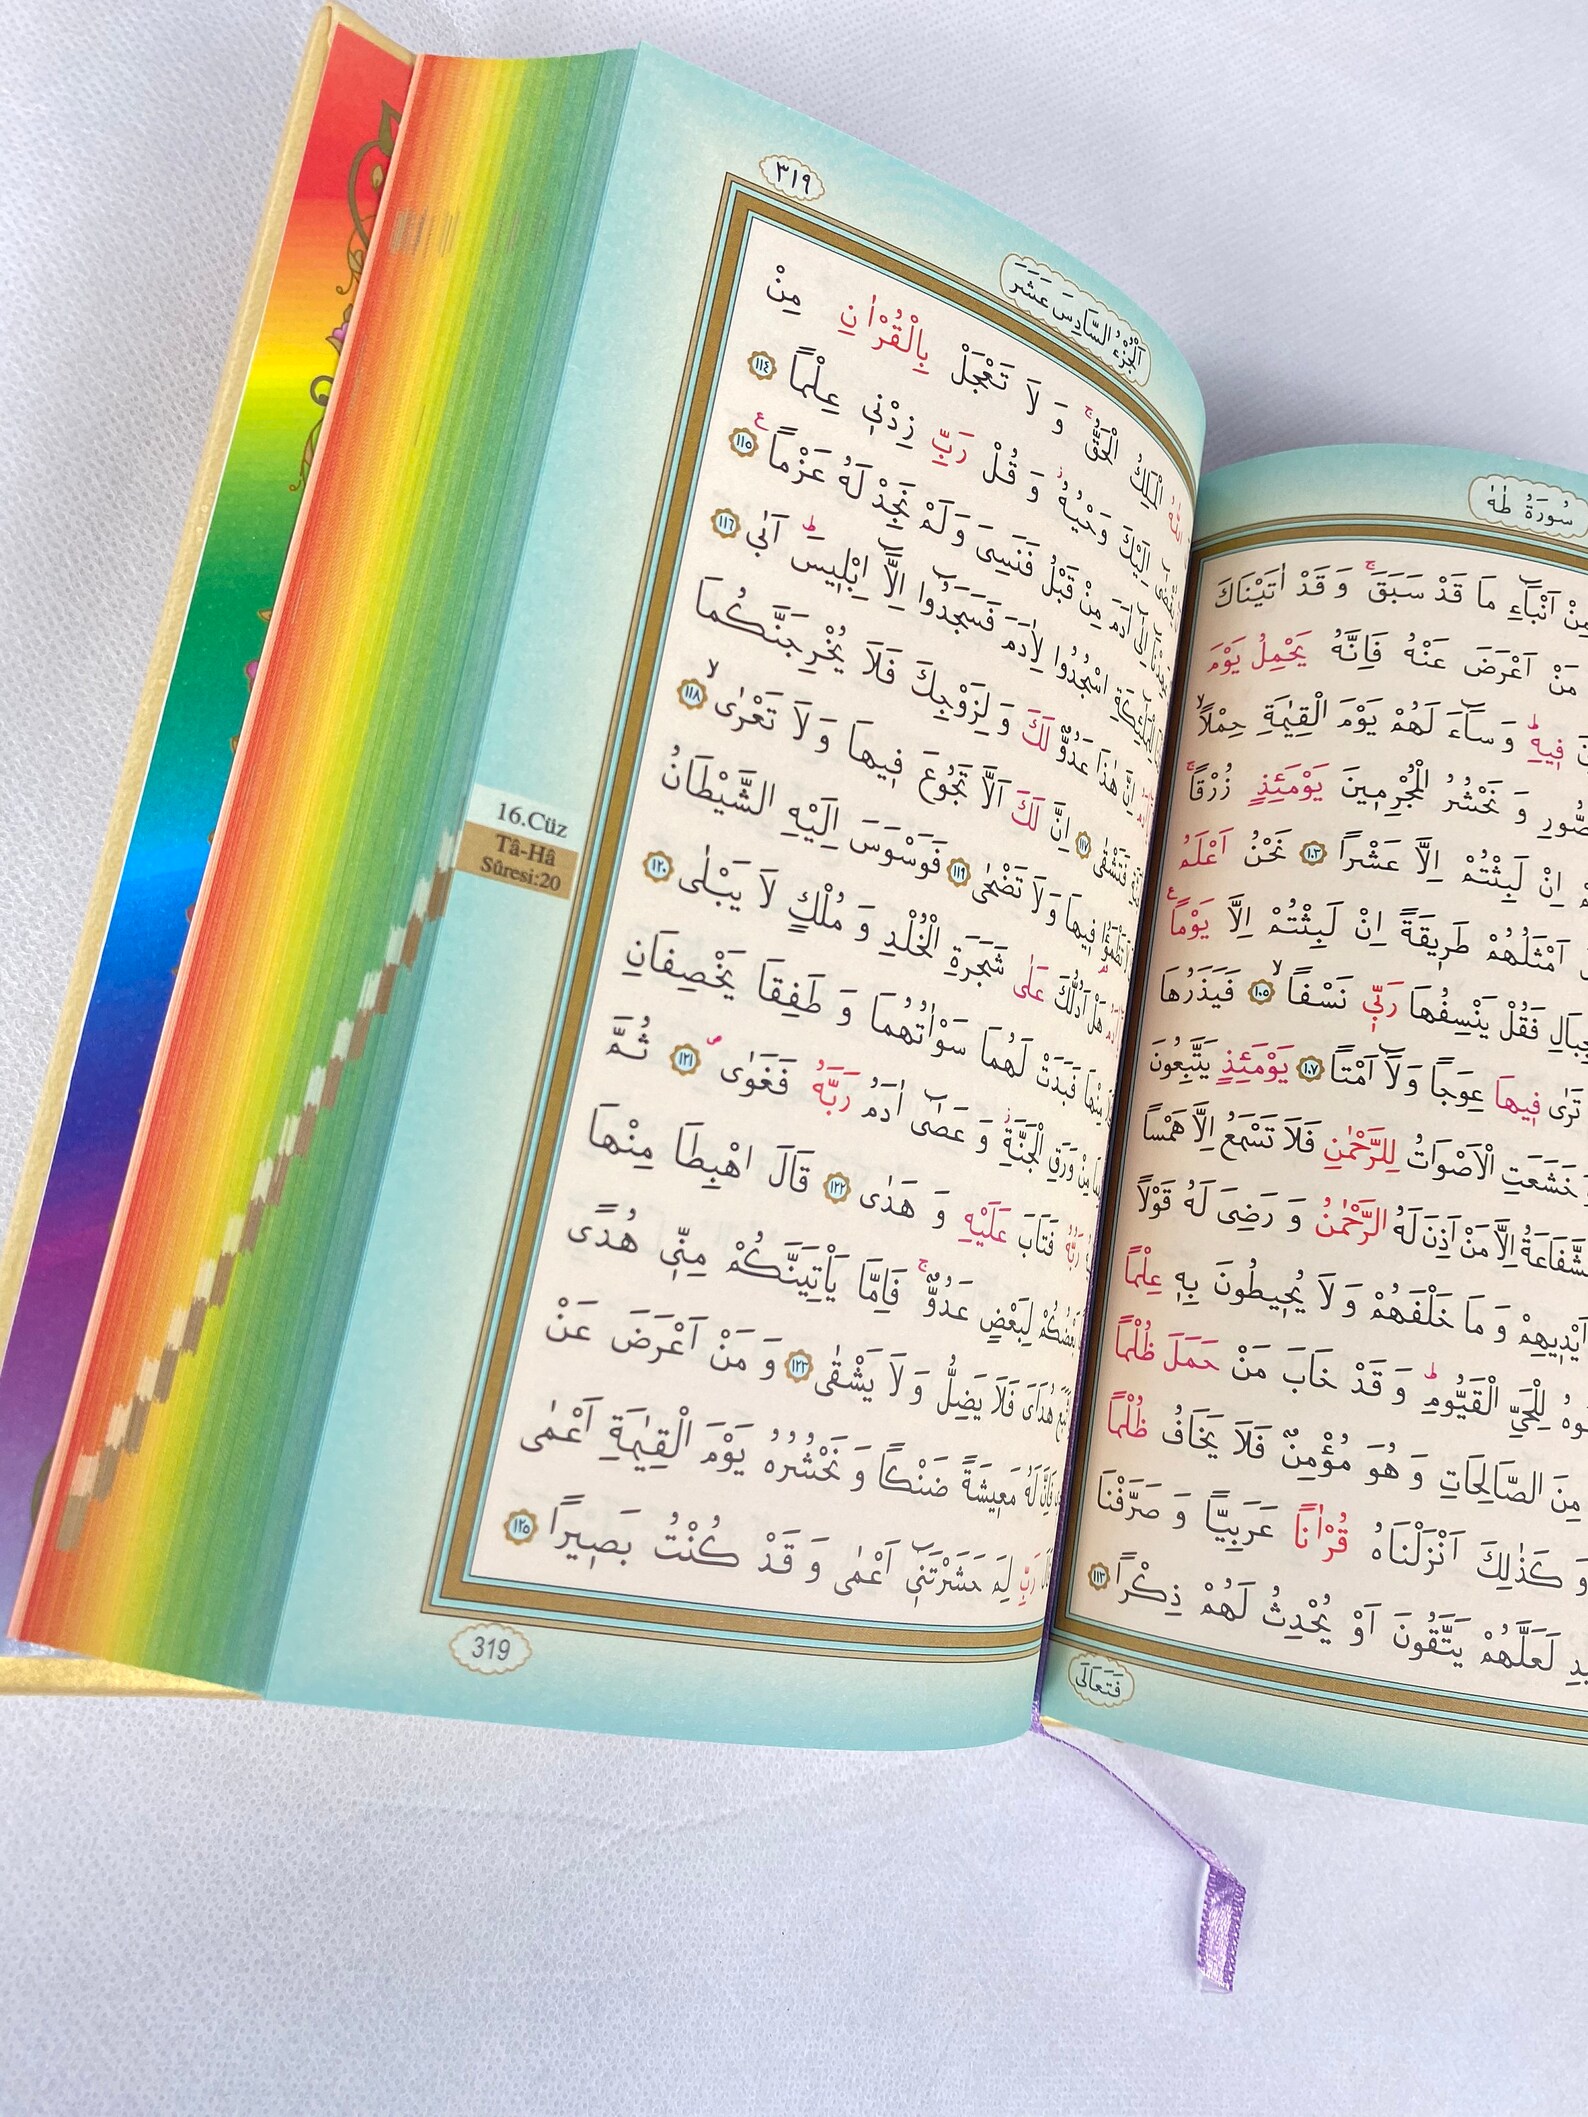 سُورَةُ طٰهٰ
مِنْ اَنْبَٓاءِ مَا قَدْ سَبَقَۚ وَ قَدْ اٰتَيْنَاكَ
مَنْ اَعْرَضَ عَنْهُ فَاِنَّهُ يَحْمِلُ يَوْمَ
فِيهِۜ وَ سَٓاءَ لَهُمْ يَوْمَ الْقِيٰمَةِ حِمْلاًۙ
وَ نَحْشُرُ الْمُجْرِمِينَ يَوْمَئِذٍ زُرْقاًۚ
اِنْ لَبِثْتُمْ اِلَّا عَشْراً ١٠٣ نَحْنُ اَعْلَمُ
اَمْثَلُهُمْ طَرِيقَةً اِنْ لَبِثْتُمْ اِلَّا يَوْماً ع
فَقُلْ يَنْسِفُهَا رَبِّي نَسْفاًۙ ١٠٥ فَيَذَرُهَا
تَرٰى فِيهَا عِوَجاً وَ لَٓا اَمْتاً ١٠٧ يَوْمَئِذٍ يَتَّبِعُونَ
خَشَعَتِ الْاَصْوَاتُ لِلرَّحْمٰنِ فَلَا تَسْمَعُ اِلَّا هَمْساً
الشَّفَاعَةُ اِلَّا مَنْ اَذِنَ لَهُ الرَّحْمٰنُ وَ رَضِىَ لَهُ قَوْلاً
اَيْدِيهِمْ وَ مَا خَلْفَهُمْ وَ لَا يُحِيطُونَ بِهِ عِلْماً
لِلْحَيِّ الْقَيُّومِۜ وَ قَدْ خَابَ مَنْ حَمَلَ ظُلْماً
مِنَ الصَّالِحَاتِ وَ هُوَ مُؤْمِنٌ فَلَا يَخَافُ ظُلْماً
وَ كَذٰلِكَ اَنْزَلْنَاهُ قُرْاٰناً عَرَبِيًّا وَ صَرَّفْنَا
لَعَلَّهُمْ يَتَّقُونَ اَوْ يُحْدِثُ لَهُمْ ذِكْراً ١١٣
فَتَعَالَى
٣١٩
اَلْجُزْءُ السَّادِسَ عَشَرَ
الْمَلِكُ الْحَقُّۚ وَ لَا تَعْجَلْ بِالْقُرْاٰنِ مِنْ
اِلَيْكَ وَحْيُهُ وَ قُلْ رَبِّ زِدْنِي عِلْماً ١١٤
اٰدَمَ مِنْ قَبْلُ فَنَسِىَ وَ لَمْ نَجِدْ لَهُ عَزْماً ع ١١٥
اسْجُدُوا لِاٰدَمَ فَسَجَدُٓوا اِلَّٓا اِبْلِيسَۜ اَبٰى ١١٦
اِنَّ هٰذَا عَدُوٌّ لَكَ وَ لِزَوْجِكَ فَلَا يُخْرِجَنَّكُمَا
فَتَشْقٰى ١١٧ اِنَّ لَكَ اَلَّا تَجُوعَ فِيهَا وَ لَا تَعْرٰىۙ ١١٨
فِيهَا وَ لَا تَضْحٰى ١١٩ فَوَسْوَسَ اِلَيْهِ الشَّيْطَانُ
هَلْ اَدُلُّكَ عَلٰى شَجَرَةِ الْخُلْدِ وَ مُلْكٍ لَا يَبْلٰى ١٢٠
مِنْهَا فَبَدَتْ لَهُمَا سَوْاٰتُهُمَا وَ طَفِقَا يَخْصِفَانِ
مِنْ وَرَقِ الْجَنَّةِ وَ عَصٰٓى اٰدَمُ رَبَّهُ فَغَوٰى ١٢١ ثُمَّ
رَبُّهُ فَتَابَ عَلَيْهِ وَ هَدٰى ١٢٢ قَالَ اهْبِطَا مِنْهَا
بَعْضُكُمْ لِبَعْضٍ عَدُوٌّۚ فَاِمَّا يَاْتِيَنَّكُمْ مِنِّي هُدًى
هُدَاىَ فَلَا يَضِلُّ وَ لَا يَشْقٰى ١٢٣ وَ مَنْ اَعْرَضَ عَنْ
فَاِنَّ لَهُ مَعِيشَةً ضَنْكاً وَ نَحْشُرُهُ يَوْمَ الْقِيٰمَةِ اَعْمٰى
رَبِّ لِمَ حَشَرْتَنِٓي اَعْمٰى وَ قَدْ كُنْتُ بَصِيراً ١٢٥
16.Cüz
Tâ-Hâ
Sûresi:20
319